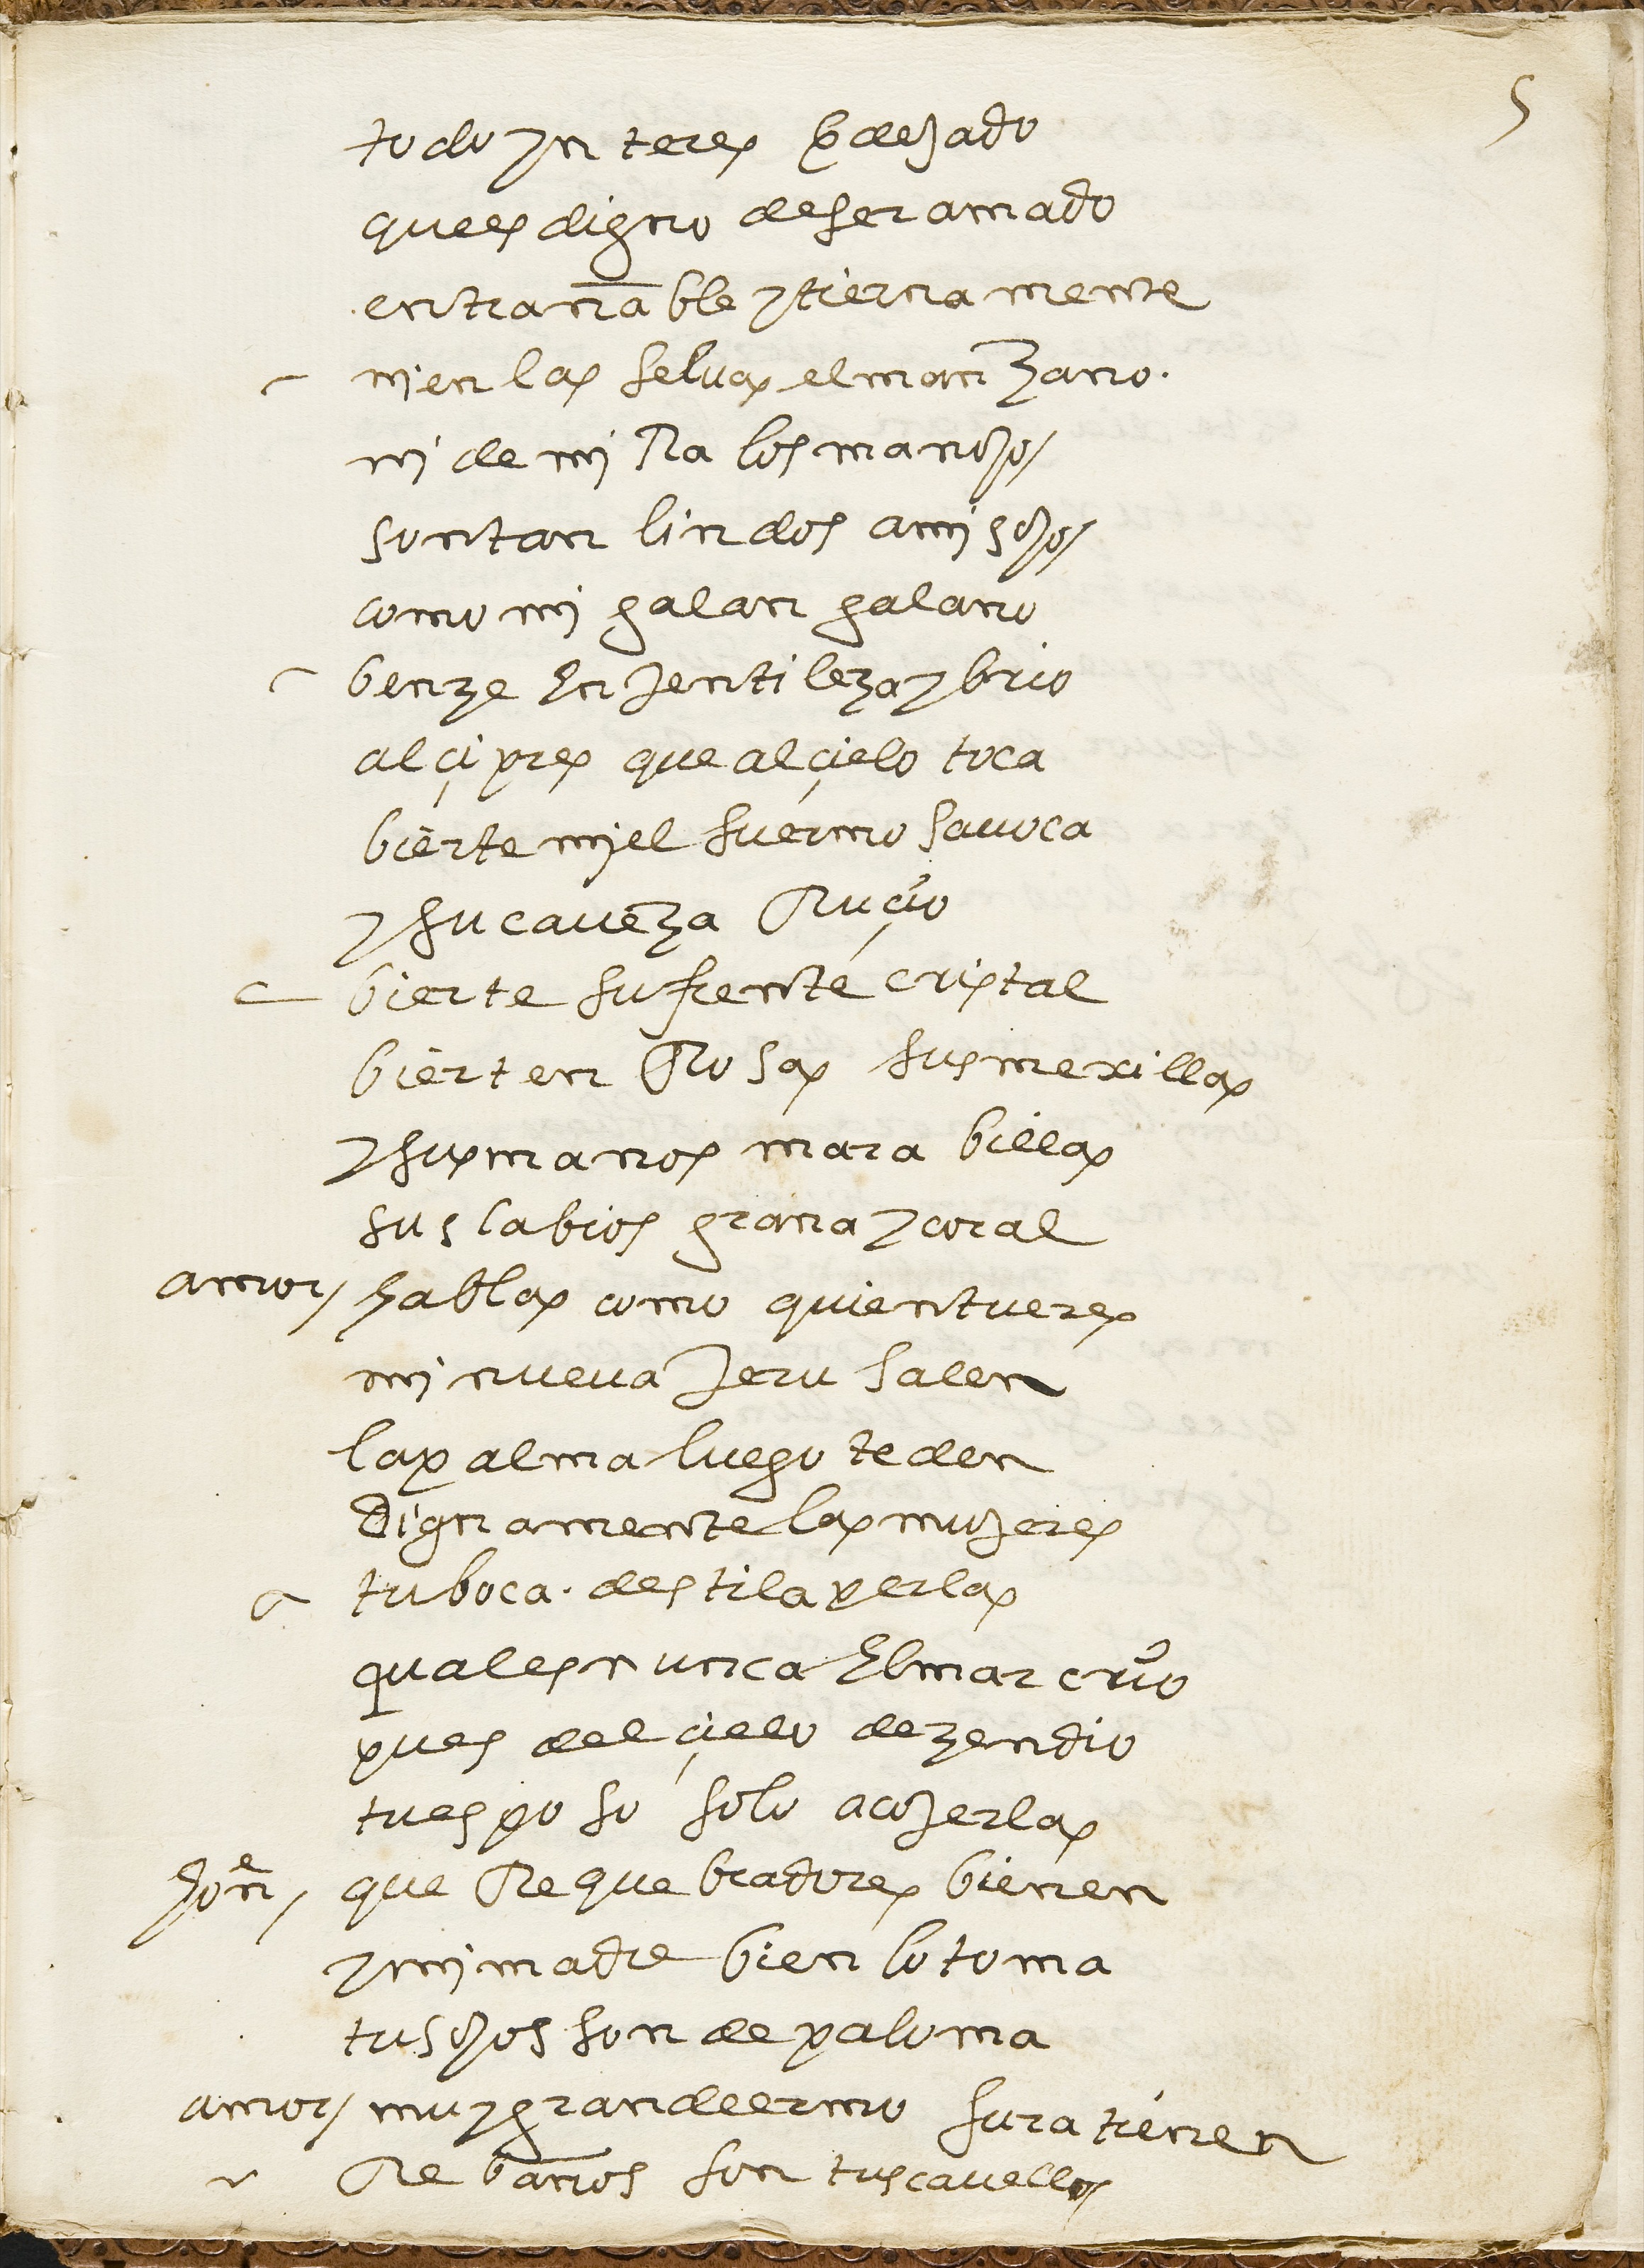 5
todo ynteres he dejado
que es digno de ser amado
entranãble y tierna mente
ni en las seluas el manzano.
ni de mi Ra los manojos
son tan lindos a mis ojos
como mi galan galano
benze En jentileza y brio
al çipres que al çielo toca
bierte miel su ermo sa uoca
y su caueza Ruçio
bierte su frente cristal
bierten Rosas sus mexillas
y sus manos mara billas
sus labios grana y coral
amor/ hablas como quien tu eres
mi nueua Jeru salen
la palma luego te den
Dignamente las mujeres
tu boca. destila perlas
quales nunca El mar crio
pues del çielo dezendio
tu esposo solo a cojerlas
que Reque bradores bienen
y mi madre bien lo toma
tus ojos son de paloma
amor/ muy grande ermo sura tienen
Rebaños son tus cauellos